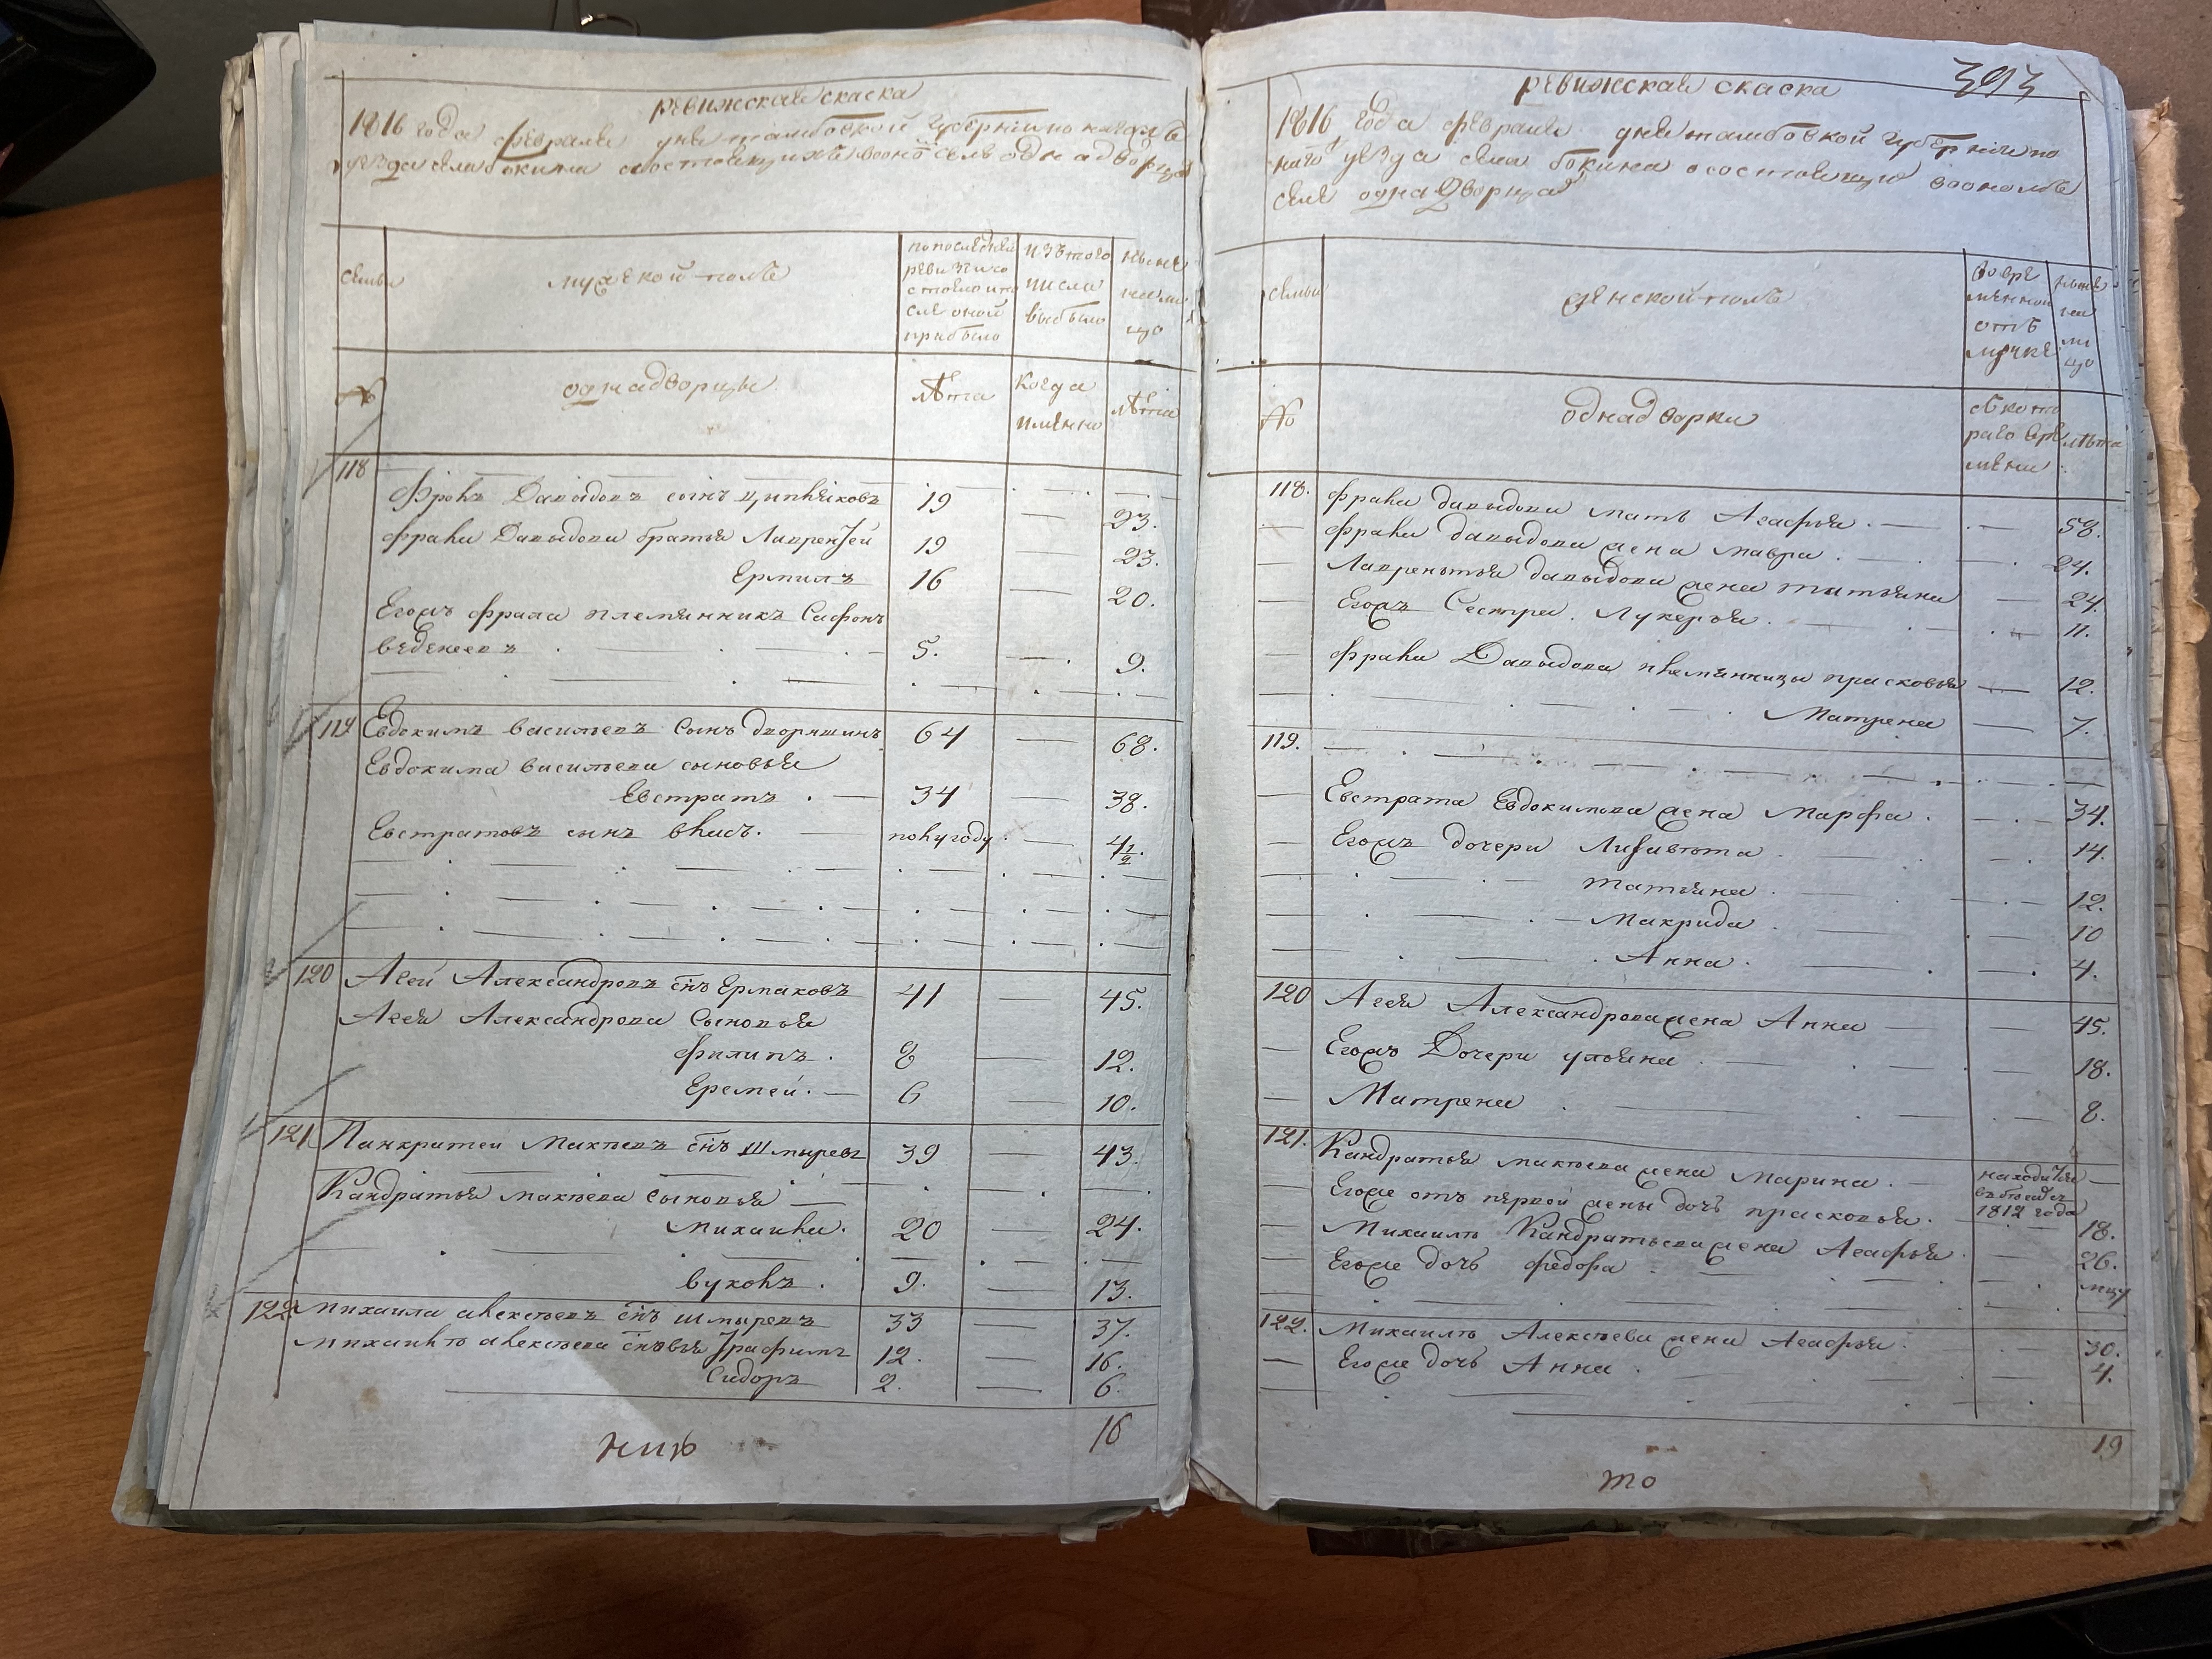 ревижская скаска
1816 года февраля дня тамбовкой губернии
уезда села бокина состоящихъ воно селе однадворца
семьи
мужской полъ
попоследней ревизии состояло ипосле оной прибыло
изътого числа выбыло
ныне налицо
№
однадворцы
лѣта
когда имянно
лѣта
118
Фролъ Давыдовъ сынъ 19 — 23.
Фрала Давыдова братья Лаврентей 19 — 23.
Ермилъ 16 — 20.
Егожъ фрала племянникъ Сафонъ
веденеевъ 5. — 9.
119 Евдокимъ васильевъ сынъ дворянинъ 64 — 68.
Евдокима васильева сыновья
Евстратъ 34 — 38.
Евстратовъ сынъ власъ. полугоду — 4½.
120 Агей Александровъ сн҃ъ Ермаковъ 41 — 45.
Агея Александрова сыновья
филипъ. 8 — 12.
Еремей. 6 — 10.
121. Панкратеи Макеевъ сн҃ъ Шмыревъ 39 — 43.
Кандратья макеева сыновья —
михаила. 20 — 24.
вуколъ. 9. — 13.
122 михаила алексеевъ сн҃ъ шмыревъ 33 — 37.
михаилы алексеева сн҃вья Трафимъ 12. — 16.
Сидоръ 2. — 6.
16
303
ревижская скаска
1816 года февраля дня тамбовкой губернии по
наго уезда села бокина осостоящихъ
селе однадворца
семьи
женской полъ
вовременной отълучке
ныне налицо
№
однадворки
съкотораго времени
лѣта
118. фрала давыдова мать Агафья. — 58.
фрала давыдова жена мавра. 24.
Лаврентья давыдова жена татьяна — 24.
Егожъ Сестра. Лукерья. 11.
фрала Давыдова племянницы прасковья — 12.
Матрена — 7.
119.
Евстрата Евдокимова жена Марфа. 34.
Егожъ дочери Лизавета 14.
татьяна. 12.
Макрида 10
Анна. 4.
120 Агея Александрова жена Анна — 45.
Егожъ Дочери ульяна. 18.
Матрена 8.
121. Кандратья макеева жена Марина. находится —
Егоже отъ первой жены дочь прасковья. вбегахъ 1812 года 18.
Михаилы Кандратьева жена Агафья. 26.
Егоже дочь федора
122. Михаилы Алексеева жена Агафья. 30.
Егоже дочь Анна. 4.
19
то